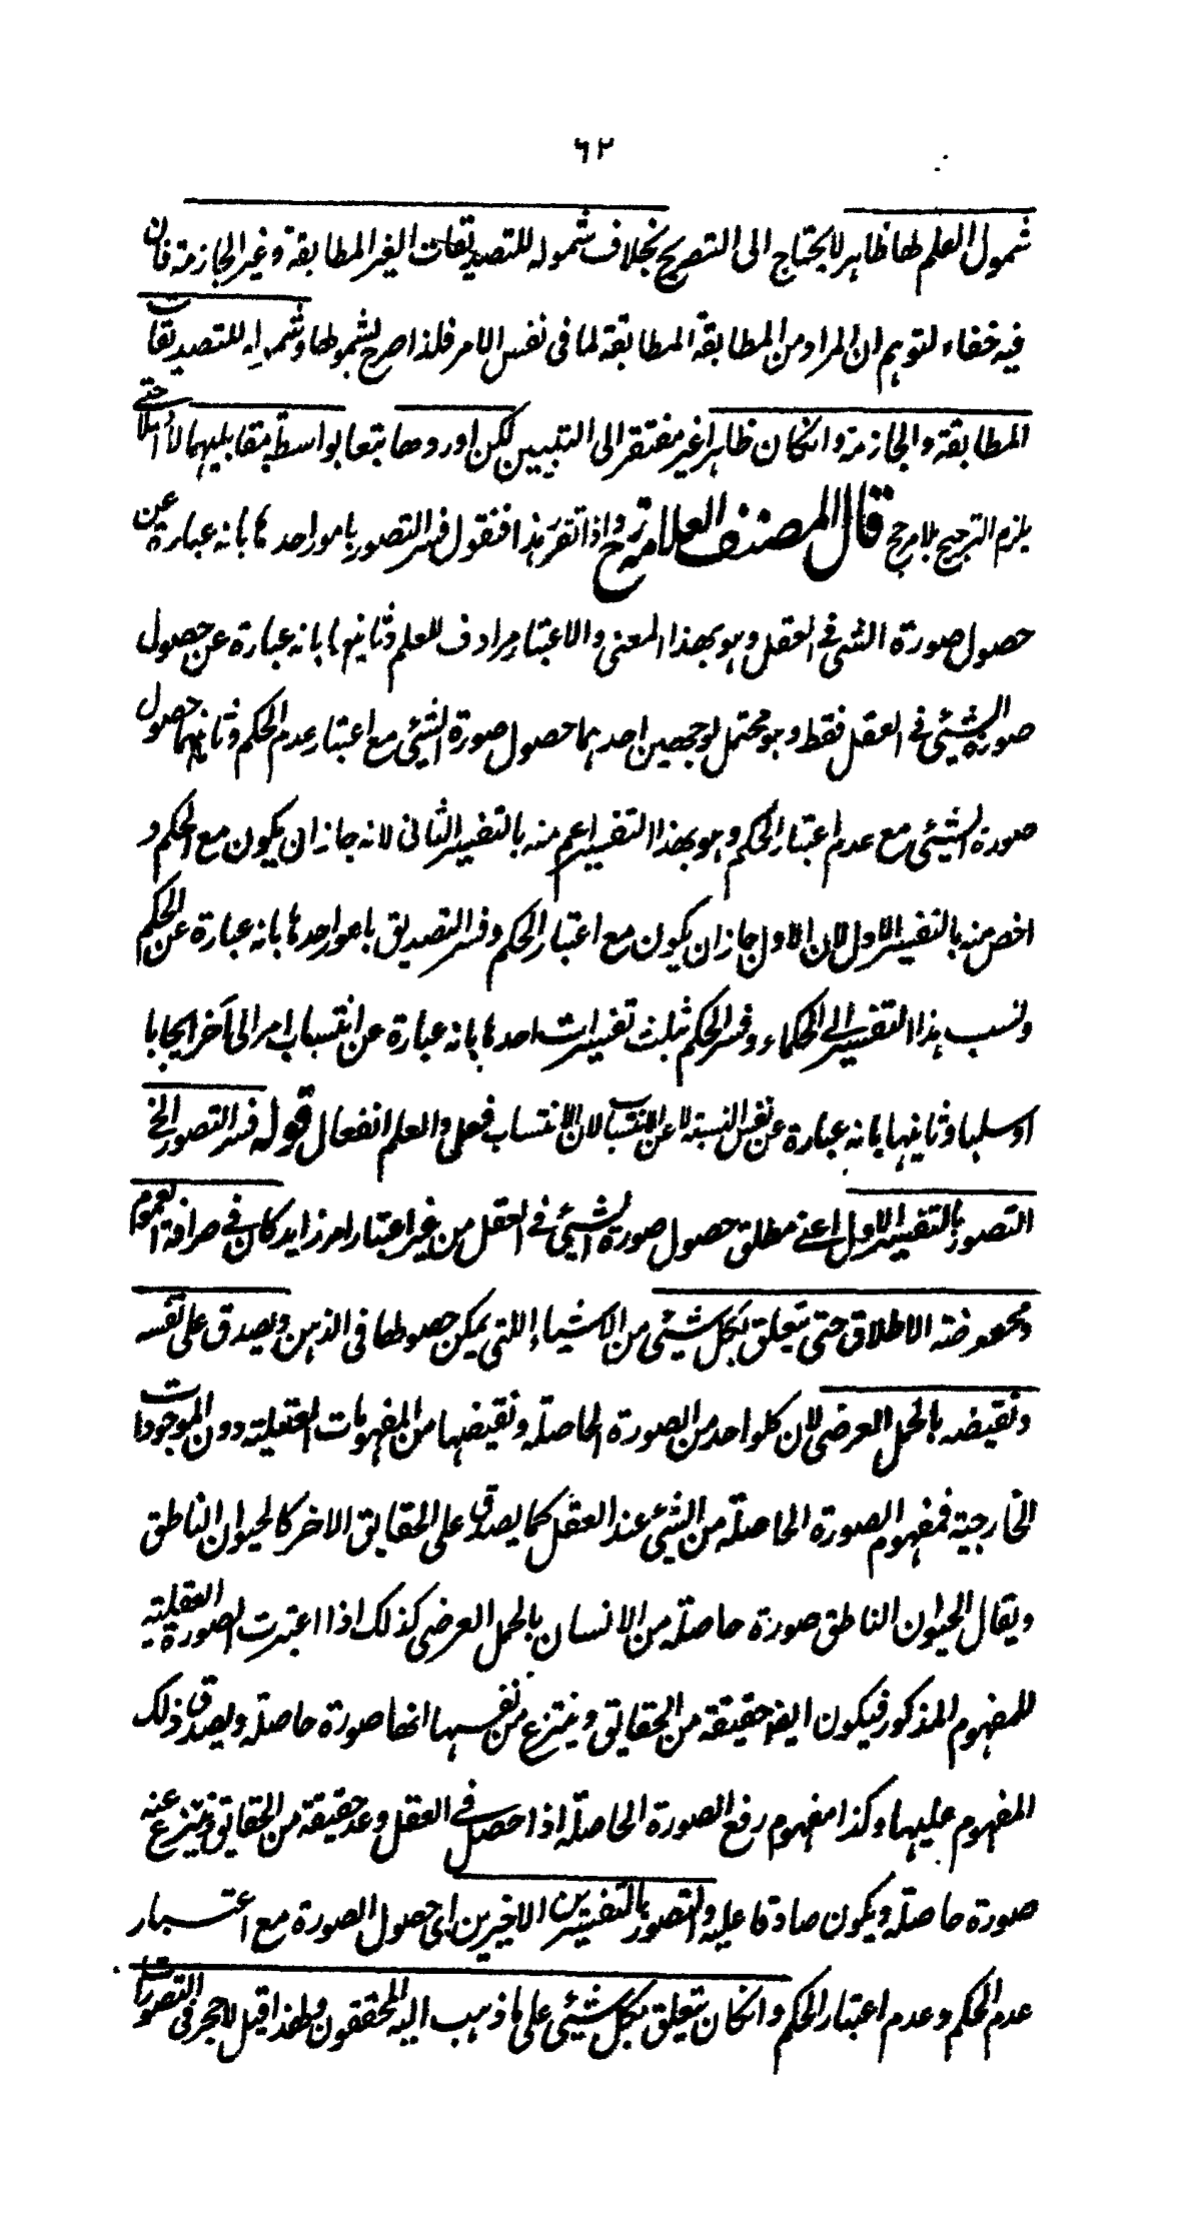 ٦٢
شمول العلم لها ظاهر لا يحتاج الى التصريح بخلاف شموله للتصديقات الغير المطابقة وغير الجازمة فان
فيه خفاء لتوهم ان المراد من المطابقة المطابقة لما فى نفس الامر فلذا صرح لشمولها وشموله للتصديقات
المطابقة والجازمة وانكان ظاهرا غير مفتقر الى التبيين لكن اوردها تبعا بواسطة مقابليهما لا اصلا حتى
يلزم الترجيح بلا مرجح قال المصنف العلامة رح واذا تقرر هذا فنقول فسر التصور بامور احدها بانه عبارة عن
حصول صورة الشى فى العقل وهو بهذا المعنى والاعتبار مرادف للعلم وثانيها بانه عبارة عن حصول
صورة الشيئى فى العقل فقط وهو محتمل لوجهين احدهما حصول صورة الشيئى مع اعتبار عدم الحكم وثانيهما حصول
صورة الشيئى مع عدم اعتبار الحكم وهو بهذا التفسير اعم منه بالتفسير الثانى لانه جاز ان يكون مع الحكم و
اخص منه بالتفسير الاول لان الاول جاز ان يكون مع اعتبار الحكم وفسر التصديق بامور احدها بانه عبارة عن الحكم
ونسب هذا التفسير الى الحكماء وفسر الحكم بثلث تفسيرات احدها بانه عبارة عن انتساب امر الى آخر ايجابا
او سلبا وثانيها بانه عبارة عن نفس النسبة لا عن الانتساب لان الانتساب فعلى والعلم انفعال قوله فسر التصور الخ
التصور بالتفسير الاول اعنى مطلق حصول صورة الشيئى فى العقل من غير اعتبار امر زايد كان فى صرافة العموم
ومحموضة الاطلاق حتى يتعلق بكل شيئى من الاشياء اللتى يمكن حصولها فى الذهن ويصدق على نفسه
ونقيضه بالحمل العرضى لان كلواحد من الصورة الحاصلة ونقيضها من المفهومات العقلية دون الموجودات
الخارجية فمفهوم الصورة الحاصلة من الشيئى عند العقل كما يصدق على الحقايق الاخر كالحيوان الناطق
ويقال الحيوان الناطق صورة حاصلة من الانسان بالحمل العرضى كذلك اذا اعتبرت الصورة العقلية
للمفهوم المذكور فيكون ايضا حقيقة من الحقايق وينتزع من نفسها انها صورة حاصلة ويصدق ذلك
المفهوم عليها وكذا مفهوم رفع الصورة الحاصلة اذا حصل فى العقل وعد حقيقة من الحقايق وينتزع عنه
صورة حاصلة ويكون صادقا عليه والتصور بالتفسيرين الاخيرين اى حصول الصورة مع اعتبار
عدم الحكم وعدم اعتبار الحكم وانكان يتعلق بكل شيئى على ما ذهب اليه المحققون ولهذا قيل لا حجر فى التصورات